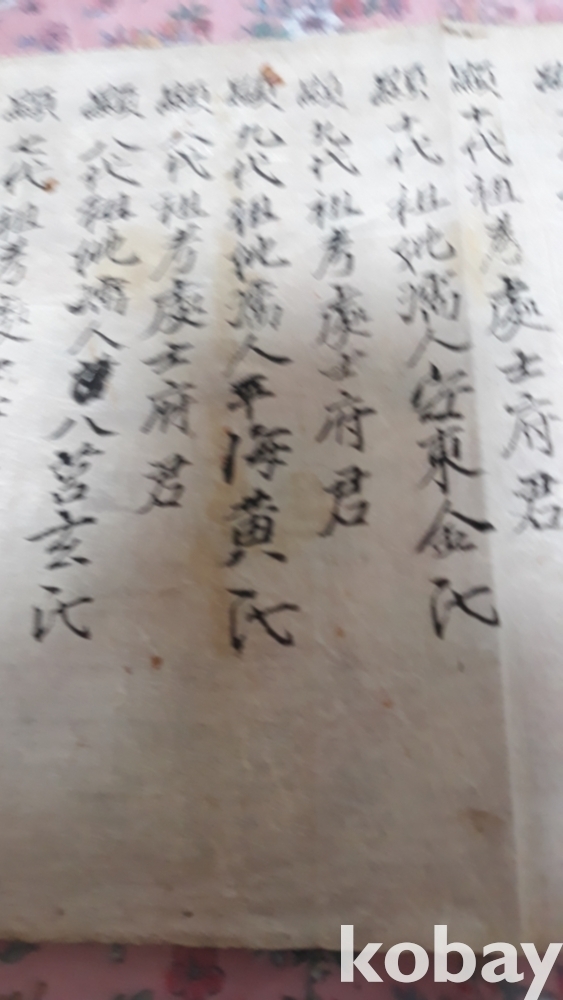 顯
顯十代祖考處士府君
顯十代祖妣孺人安東金氏
顯九代祖考處士府君
顯九代祖妣孺人平海黄氏
顯八代祖考處士府君
顯八代祖妣孺人八莒玄氏
顯七代祖考處士
kobay